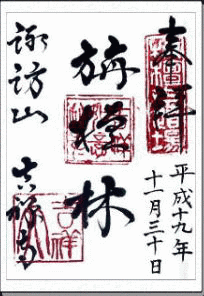 奉拝
平成十九年
十一月三十日
旃檀林
諏訪山 吉祥寺